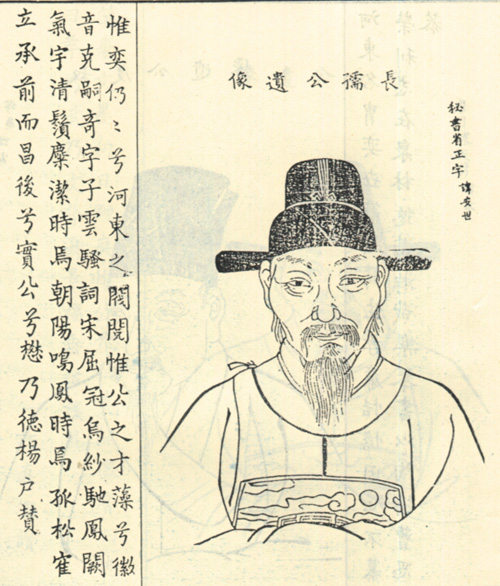 秘書省正字 諱安世
長孺公遺像
惟奕仍〻兮河東之閥閱惟公之才藻兮徽
音克嗣奇字子雲騷詞宋屈冠烏紗馳鳳闕
氣宇清鬚麋潔時焉朝陽鳴鳳時焉孤松隺
立承前而昌後兮實公兮懋乃德楊戶贊